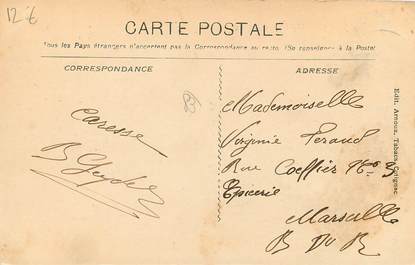 12 €
CARTE POSTALE
Tous les Pays étrangers n'acceptent pas la Correspondance au recto (Se renseigner à la Poste)
CORRESPONDANCE
ADRESSE
83
Caresse
Mademoiselle
Virginie Peraud
Rue Coeffier No 3
Epicerie
Marseille
B Du R
Edit. Arnoux, Tabacs,